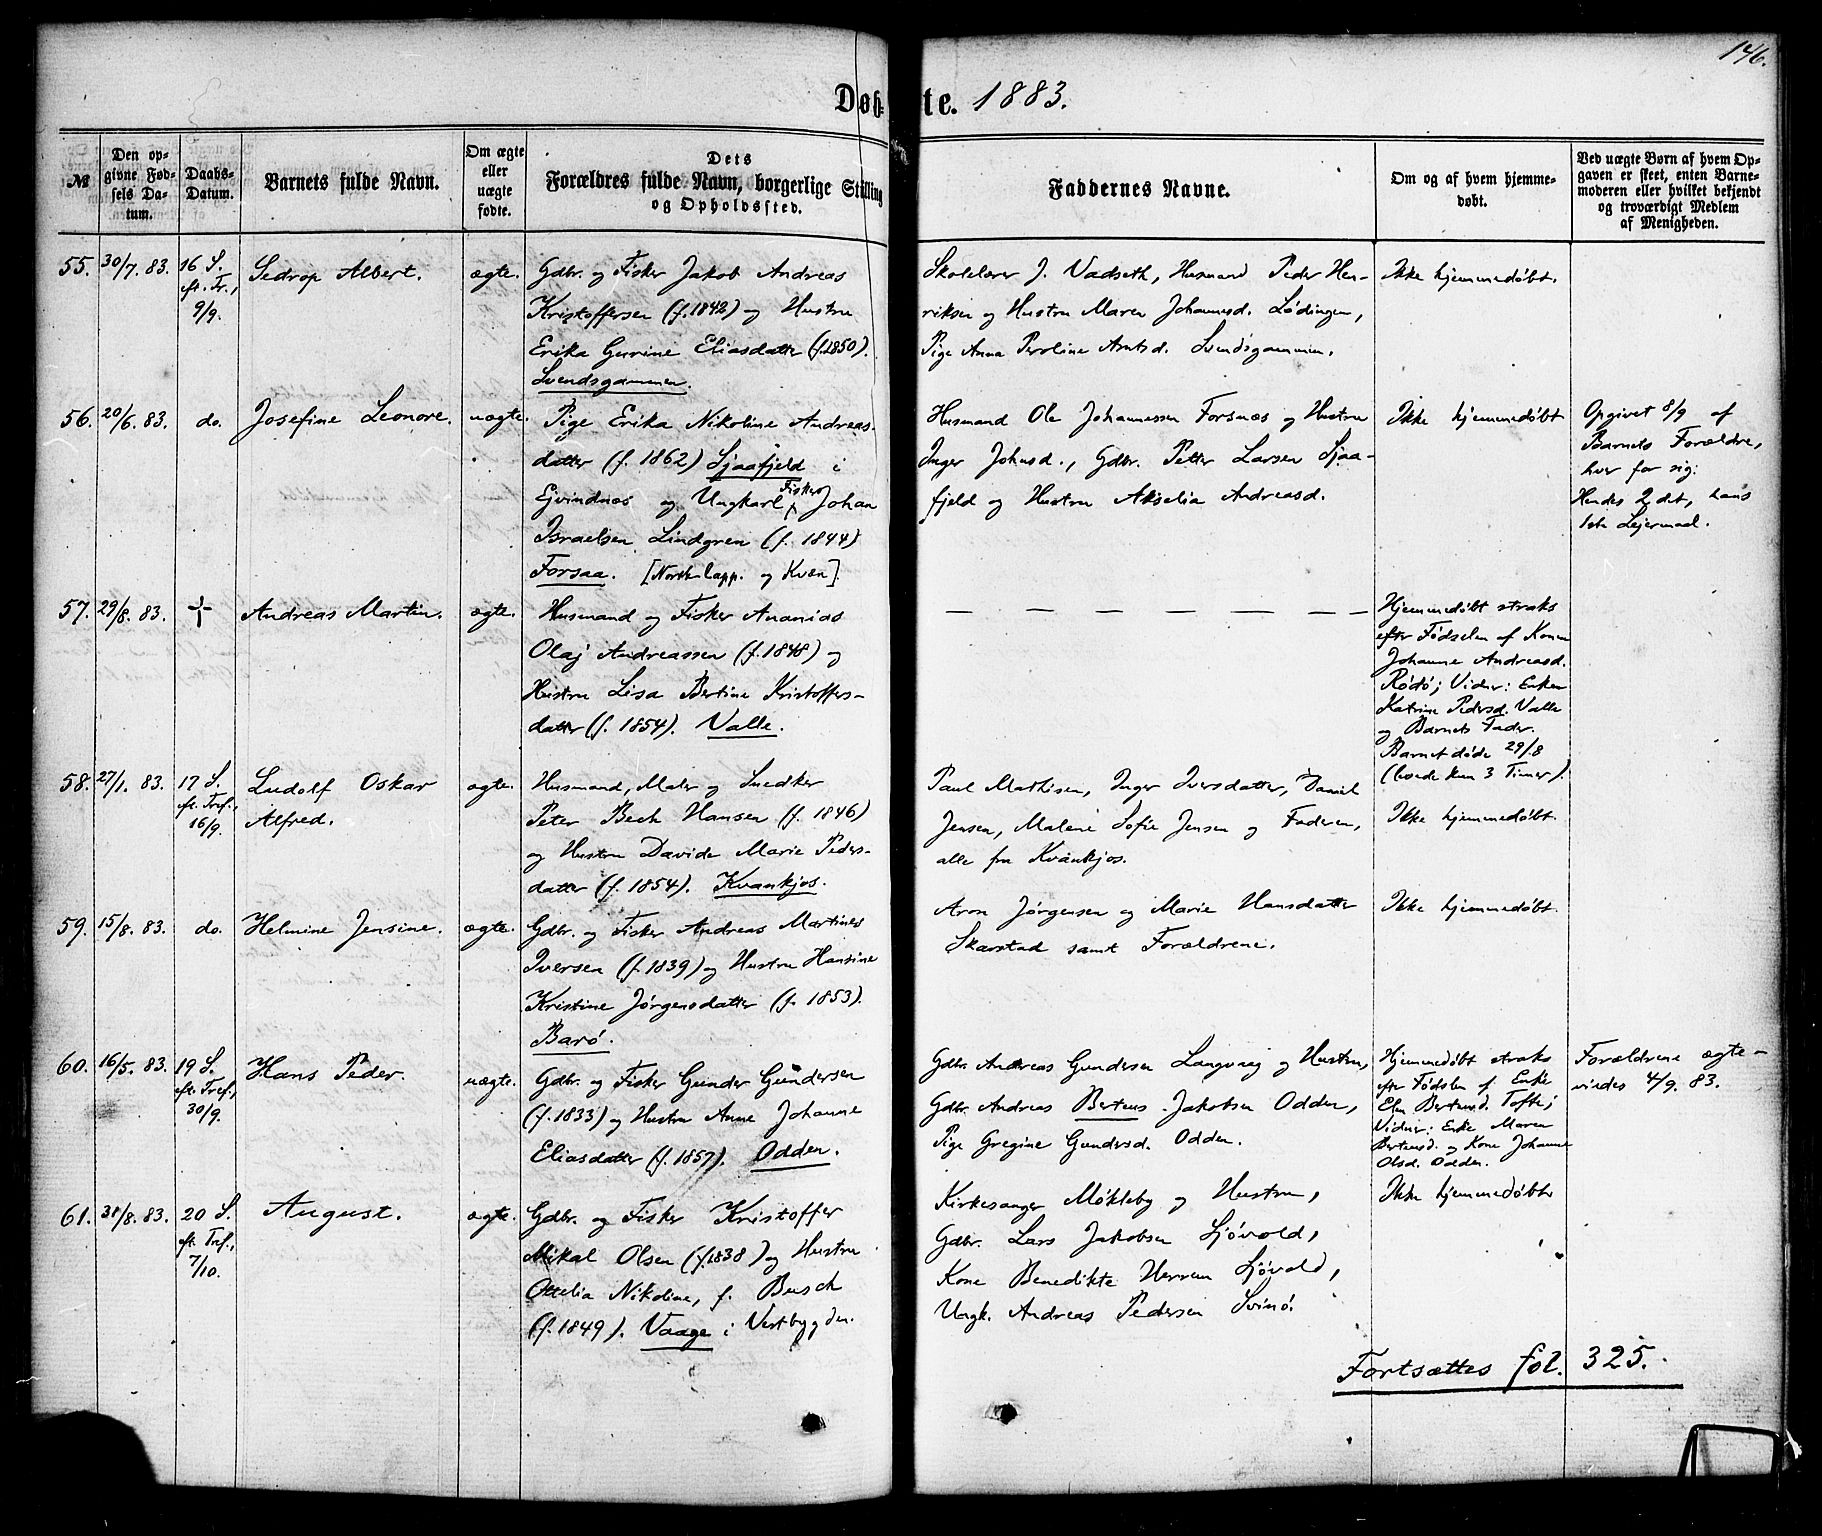 146.
Døbte. 1883.
№
Den opgivne Fødsels Datum.
Daabs-Datum.
Barnets fulde Navn.
Om ægte eller uægte fødte.
Dets Forældres fulde Navn, borgerlige Stilling og Opholdssted.
Faddernes Navne.
Om og af hvem hjemmedøbt.
Ved uægte Børn af hvem Opgaven er skeet, enten Barnemoderen eller hvilket bekjendt og troværdigt Medlem af Menigheden.
55. 30/7. 83. 16 S. eft. Tr., 9/9. Sedrop Albert. ægte.
Gdbr. og Fisker Jakob Andreas
Kristoffersen (f. 1842) og Hustru
Erika Gurine Eliasdatter (f. 1850).
Svendsgammen.
Skolelærer J. Vadseth, Husmand Peder Hen-
riksen og Hustru Maren Johannesd. Lødingen,
Pige Anna Peroline Arntsd. Svendsgammen.
Ikke hjemmedøbt.
56. 20/6. 83. do. Josefine Leonore. uægte.
Pige Erika Nikoline Andreas-
datter (f. 1862) Sjaafjeld i
Ejvindnes og Ungkarl Fisker Johan
Israelsen Lindgren (f. 1844)
Forsaa. [Norsk Lapp. og Kvæn].
Husmand Ole Johannessen Forsnes og Hustru
Inger Johnsd., Gdbr. Petter Larsen Sjaa-
fjeld og Hustru Akselia Andreasd.
Ikke hjemmedøbt
Opgivet 8/9 af
Barnets Forældre,
hver for sig:
Hendes 2det, hans
1ste Lejermaal.
57. 29/8. 83. Andreas Martin. ægte.
Husmand og Fisker Ananias
Olaj Andreassen (f. 1848) og
Hustru Lisa Bertine Kristoffers-
datter (f. 1854). Valle.
— — — — — — —
Hjemmedøbt straks
efter Fødselen af Konen
Johanne Andreasd.
Rødø; Vidner: Enken
Katrine Pedersd. Valle
og Barnets Fader.
Barnet døde 29/8
(levede kun 3 Timer).
58. 27/1. 83. 17 S. eft. Tref., 16/9. Ludolf Oskar
Alfred. ægte.
Husmand, Maler og Snedker
Peter Bech Hansen (f. 1846)
og Hustru Davida Marie Peders-
datter (f. 1854). Kvankjos.
Paul Mathisen, Inger Iversdatter, Daniel
Jensen, Malene Sofie Jensen og Faderen,
alle fra Kvankjos.
Ikke hjemmedøbt.
59. 15/8. 83. do. Helmine Jensine. ægte.
Gdbr. og Fisker Andreas Martines
Iversen (f. 1839) og Hustru Hansine
Kristine Jørgensdatter (f. 1853).
Barø.
Aron Jørgensen og Marie Hansdatter
Skarstad samt Forældrene.
Ikke hjemmedøbt.
60. 16/5. 83. 19 S. eft. Tref., 30/9. Hans Peder. uægte.
Gdbr. og Fisker Gunder Gundersen
(f. 1833) og Hustru Anne Johanne
Eliasdatter (f. 1857). Odden.
Gdbr. Andreas Gundersen Langvaag og Hustru,
Gdbr. Andreas Berteus Jakobsen Odden,
Pige Gregine Gundersd. Odden.
Hjemmedøbt straks
efter Fødslen af Enke
Elen Berteusd. Tofte;
Vidner: Enke Maren
Berteusd. og Kone Johanne
Olsd. Odden.
Forældrene ægte-
viedes 4/9. 83.
61. 31/8. 83. 20 S. eft. Tref., 7/10. August. ægte.
Gdbr. og Fisker Kristoffer
Mikal Olsen (f. 1838) og Hustru
Ottelia Nikoline, f. Busch
(f. 1849). Vaage i Vestbygden.
Kirkesanger Møkleby og Hustru,
Gdbr. Lars Jakobsen Sjøvold,
Kone Benedikte Herrem Sjøvold,
Ungk. Andreas Pedersen Svinø.
Ikke hjemmedøbt
Fortsættes fol. 325.